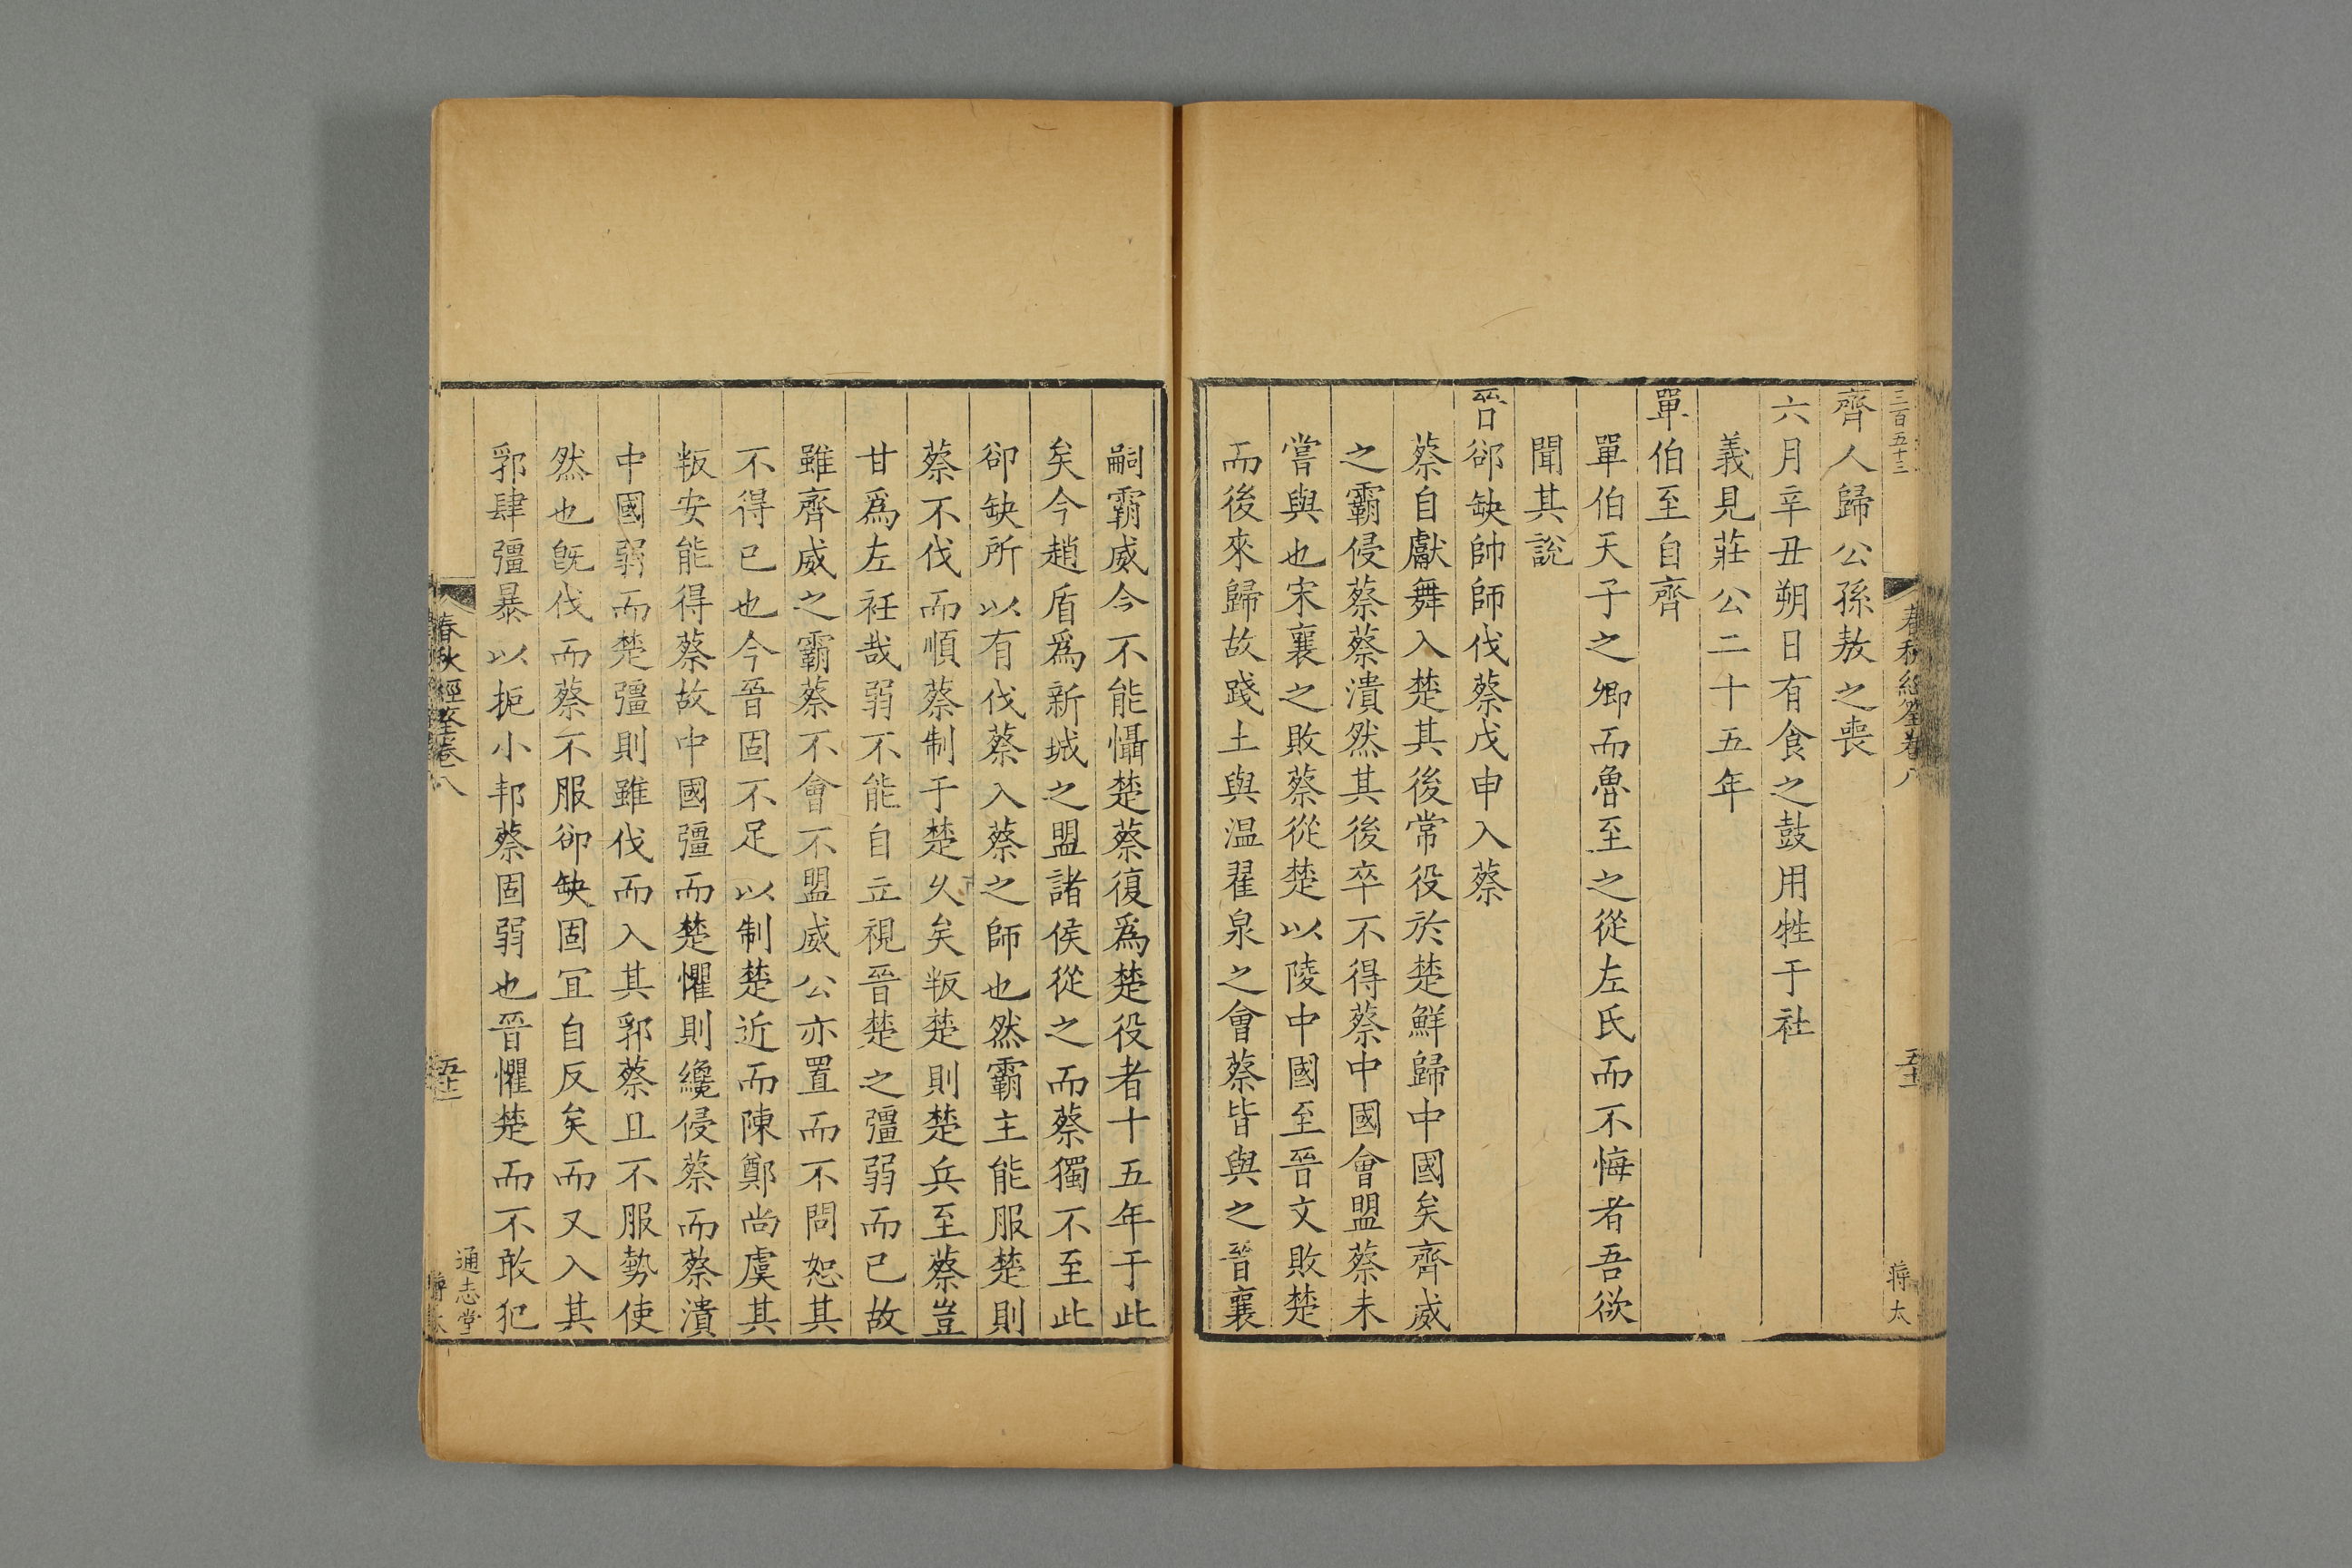 三百五十三
春秋經筌卷八
蔣太
齊人歸公孫敖之喪
六月辛丑朔日有食之鼓用牲于社
義見莊公二十五年
單伯至自齊
單伯天子之卿而魯至之從左氏而不悔者吾欲
聞其說
晉郤缺帥師伐蔡戊申入蔡
蔡自獻舞入楚其後常役於楚鮮歸中國矣齊威
之霸侵蔡蔡潰然其後卒不得蔡中國會盟蔡未
嘗與也宋襄之敗蔡從楚以陵中國至晉文敗楚
而後來歸故踐土與温翟泉之會蔡皆與之晉襄
嗣霸威今不能懾楚蔡復爲楚役者十五年于此
矣今趙盾爲新城之盟諸侯從之而蔡獨不至此
郤缺所以有伐蔡入蔡之師也然霸主能服楚則
蔡不伐而順蔡制于楚久矣叛楚則楚兵至蔡豈
甘爲左衽哉弱不能自立視晉楚之彊弱而已故
雖齊威之霸蔡不會不盟威公亦置而不問恕其
不得已也今晉固不足以制楚近而陳鄭尚虞其
叛安能得蔡故中國彊而楚懼則纔侵蔡而蔡潰
中國弱而楚彊則雖伐而入其郛蔡且不服勢使
然也旣伐而蔡不服郤缺固冝自反矣而又入其
郛肆彊暴以扼小邦蔡固弱也晉懼楚而不敢犯
春秋經筌卷八
通志堂